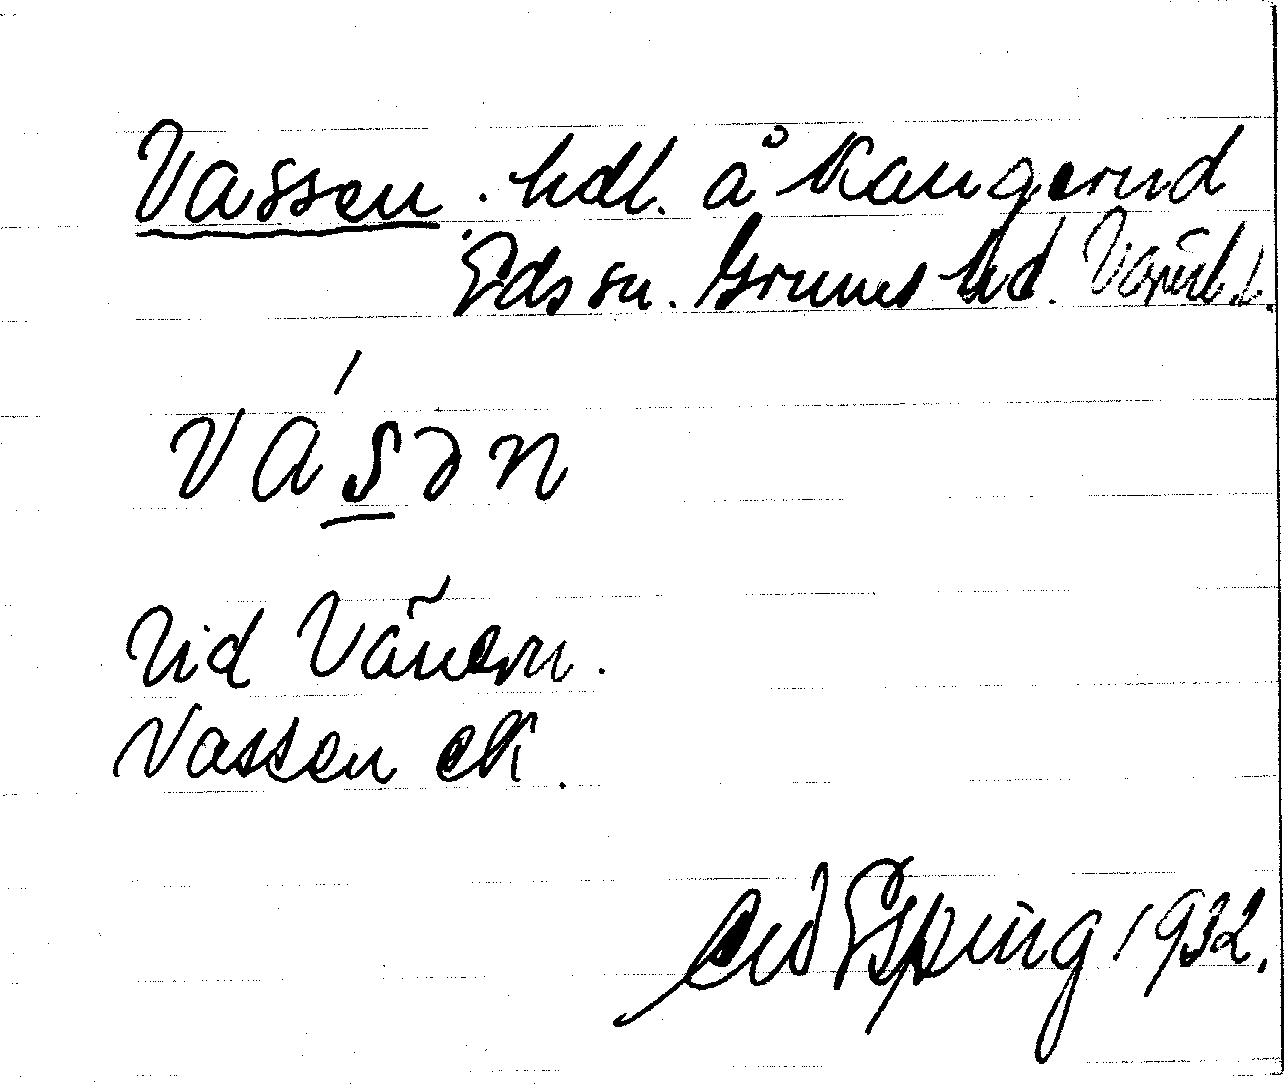 Vassen. hdl. å Kangerud
Eds sn. Grums hd. Värml.
vásən
Vid Vänern.
Vassen ek.
Esping 1932.